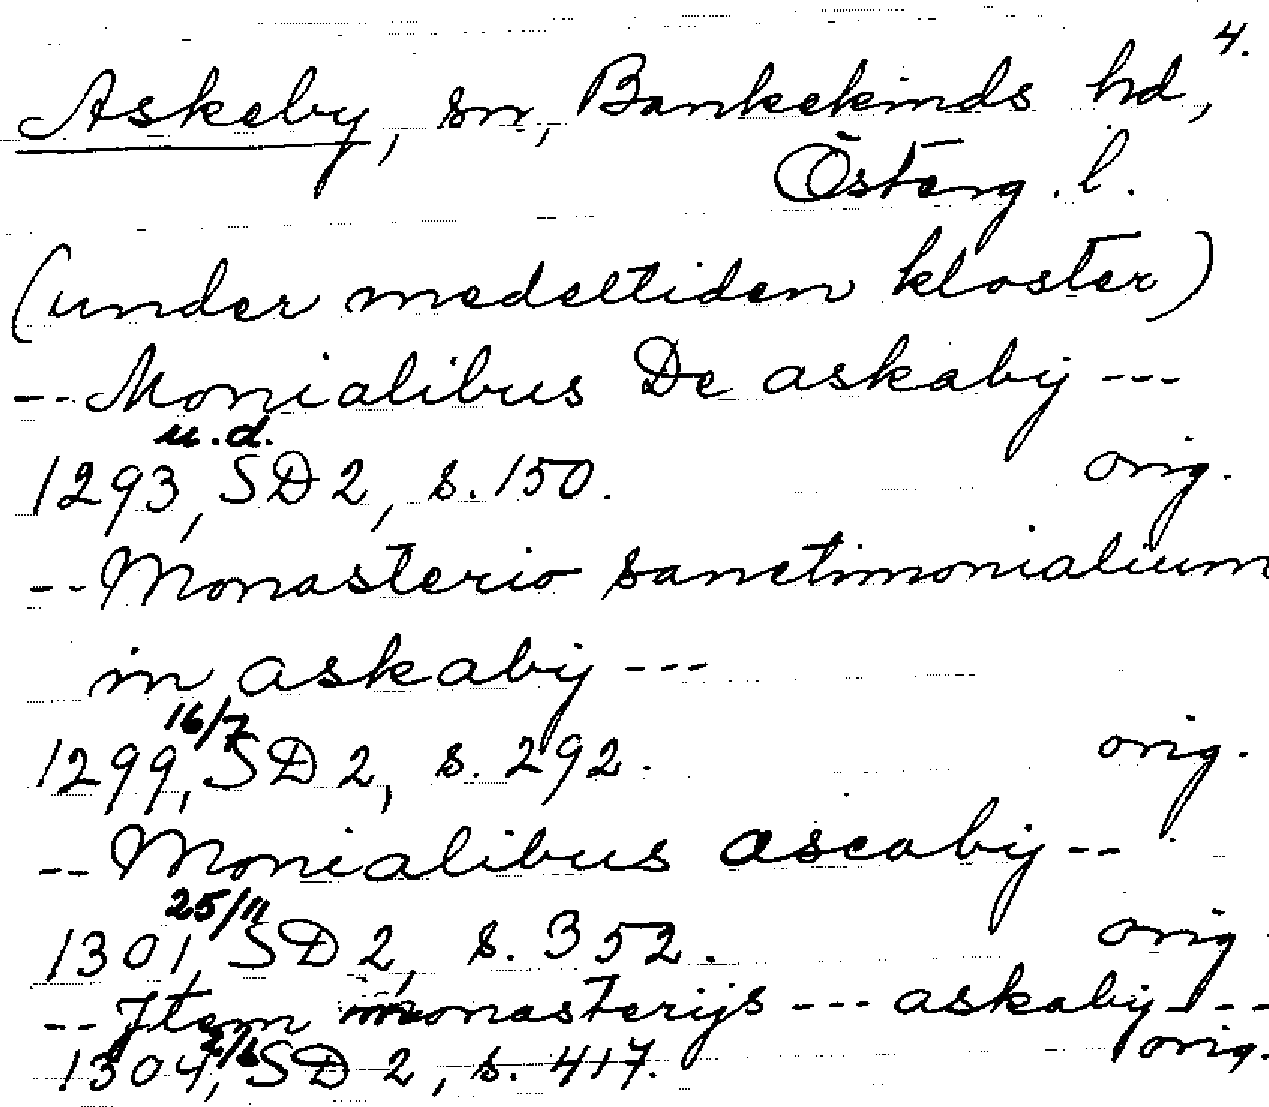 4.
Askeby, sn, Bankekinds hd,
Österg. l.
(under medeltiden kloster)
-- Monialibus De askabÿ ---
u.d.
1293, SD 2, s. 150. orig.
-- Monasterio sanctimonialium
in askabÿ ---
16/7
1299, SD 2, s. 292. orig.
-- Monialibus ascabÿ --
25/11
1301, SD 2, s. 352. orig
-- Jtem monasterijs --- askabÿ ---
1304, SD 2, s. 417. orig.